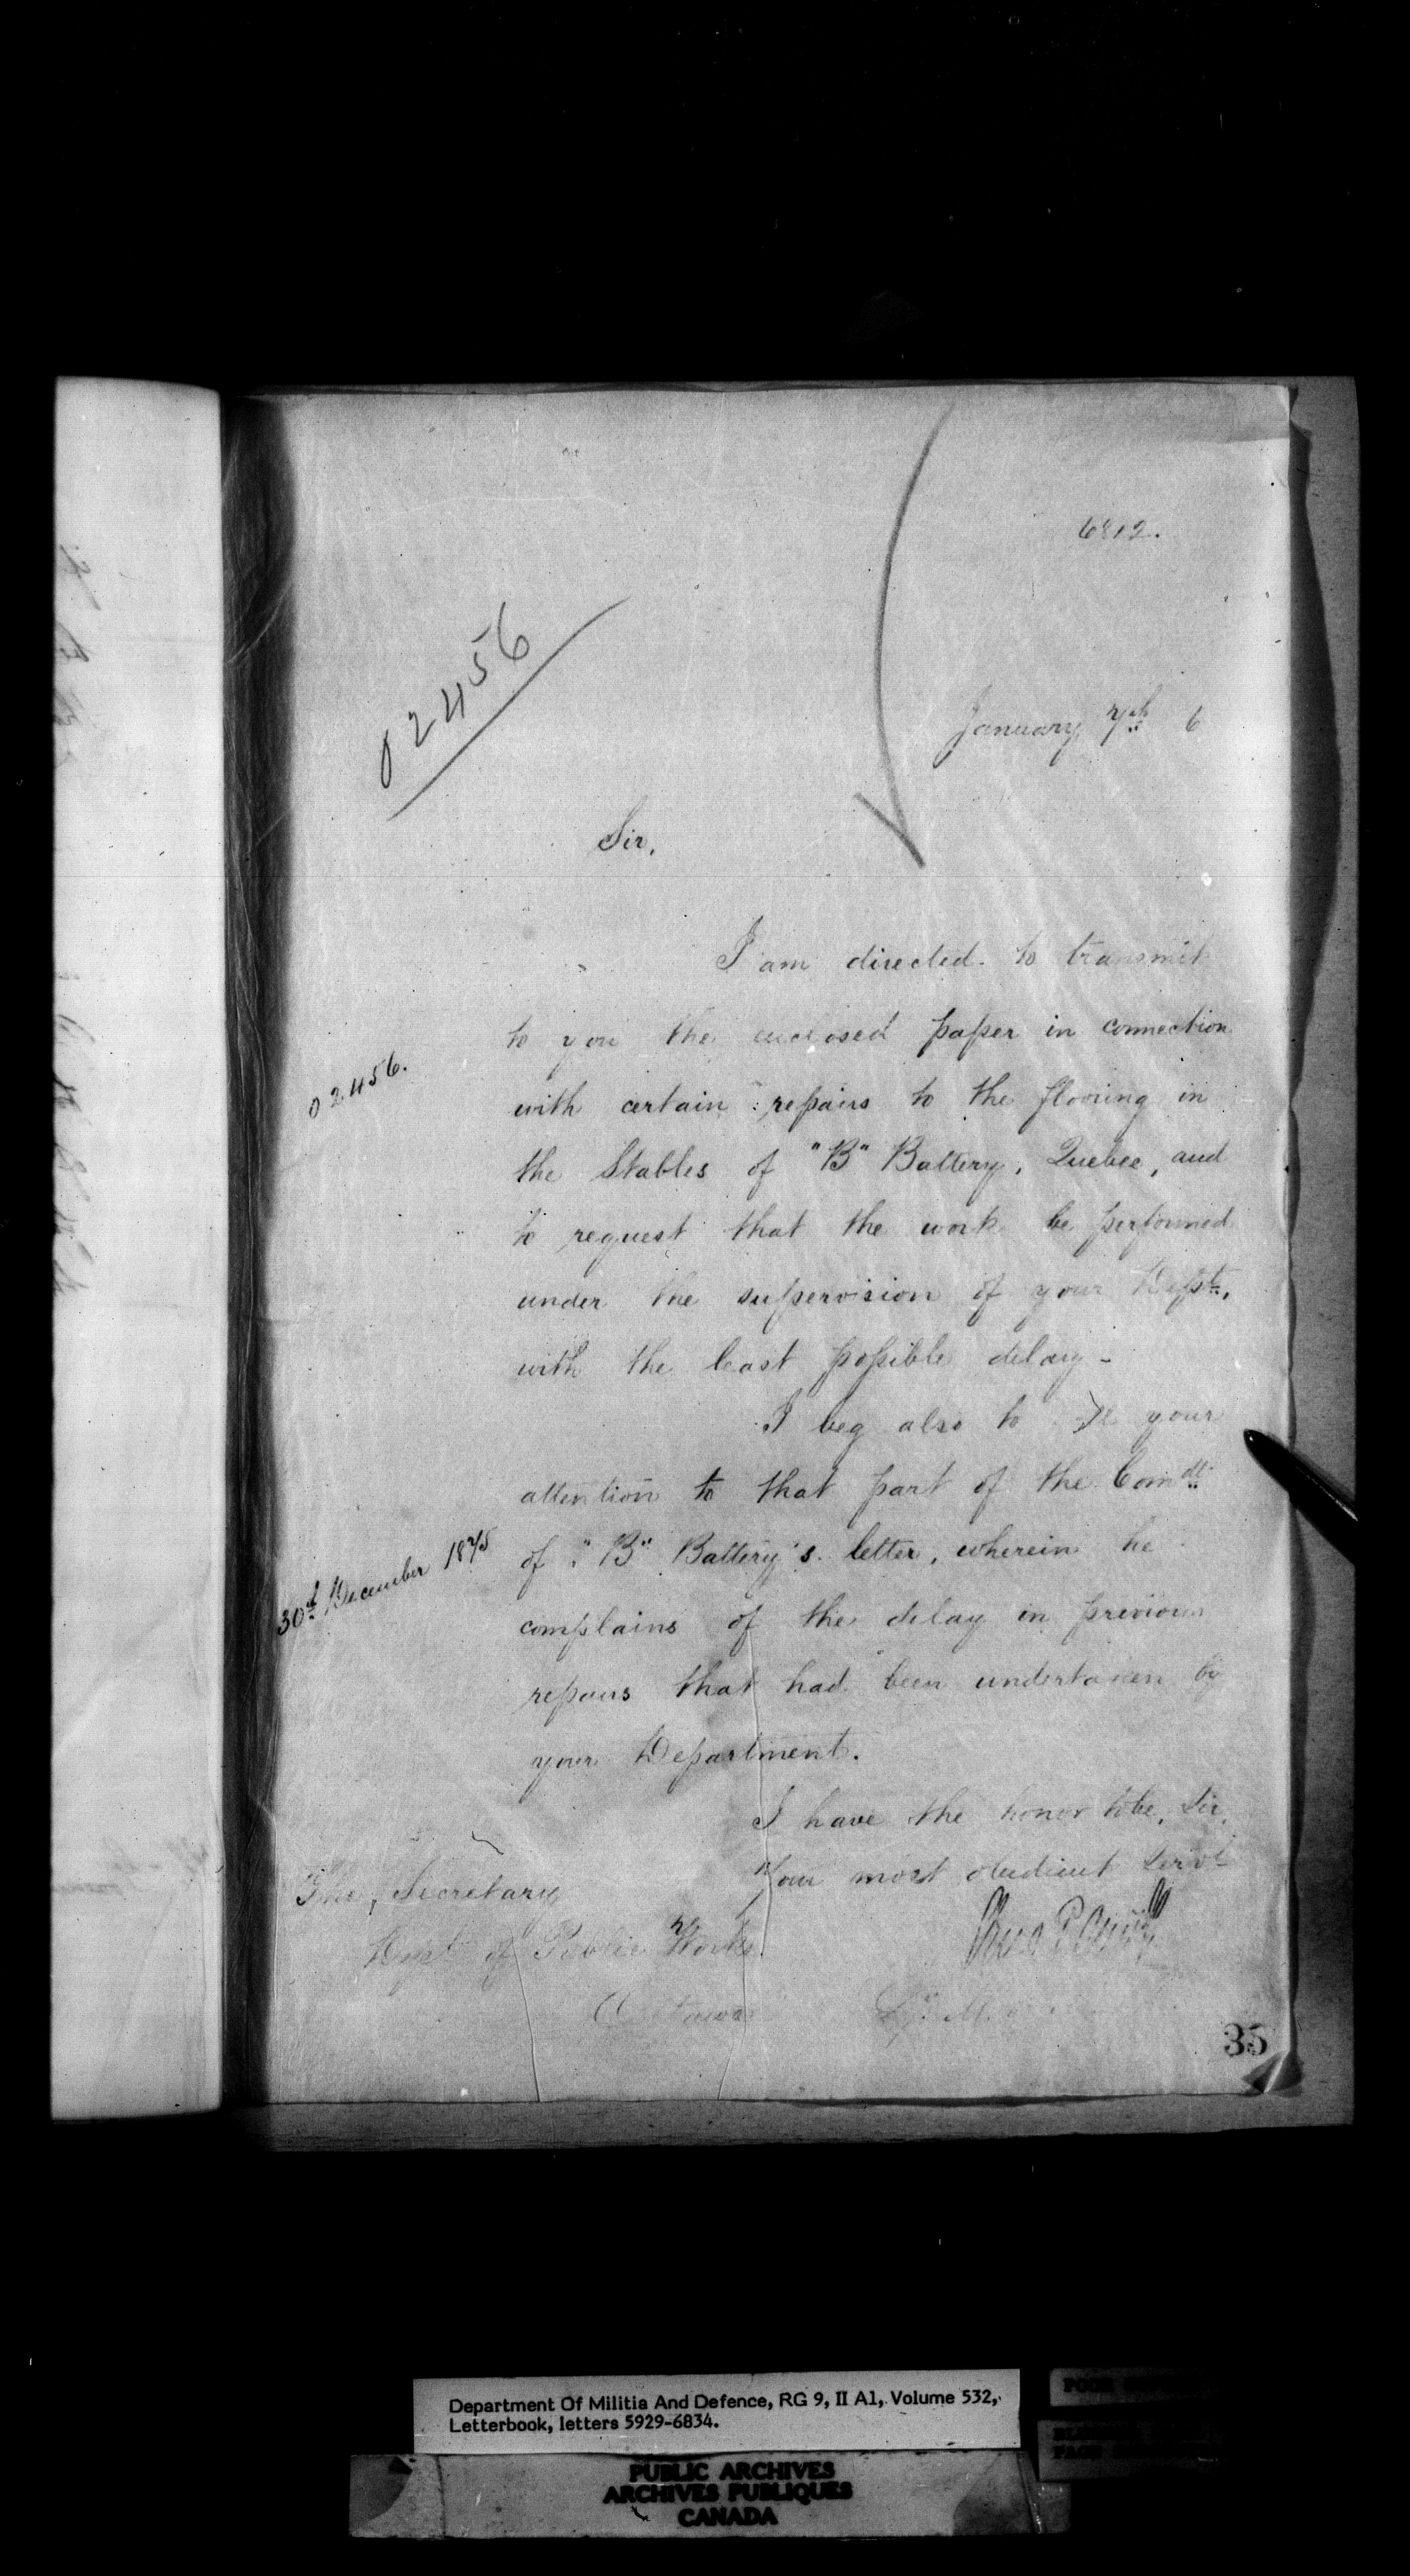 6812.
02456
January 7th 6
Sir,
I am directed to transmit
to you the enclosed paper in connection
02456.
with certain repairs to the flooring in
the Stables of "B" Battery, Quebec, and
to request that the work be performed
under the supervision of your Dept.,
with the least possible delay -
I beg also to your
attention to that part of the Comdt.
30th December 1875
of "B" Battery's letter, wherein he
complains of the delay in previous
repairs that had been undertaken by
your Department.
I have the honor to be, Sir,
Your most obedient Servt
The, Secretary
Dept of Public Works
Ottawa
35
Department Of Militia And Defence, RG 9, II A1, Volume 532,
Letterbook, letters 5929-6834.
PUBLIC ARCHIVES
ARCHIVES PUBLIQUES
CANADA